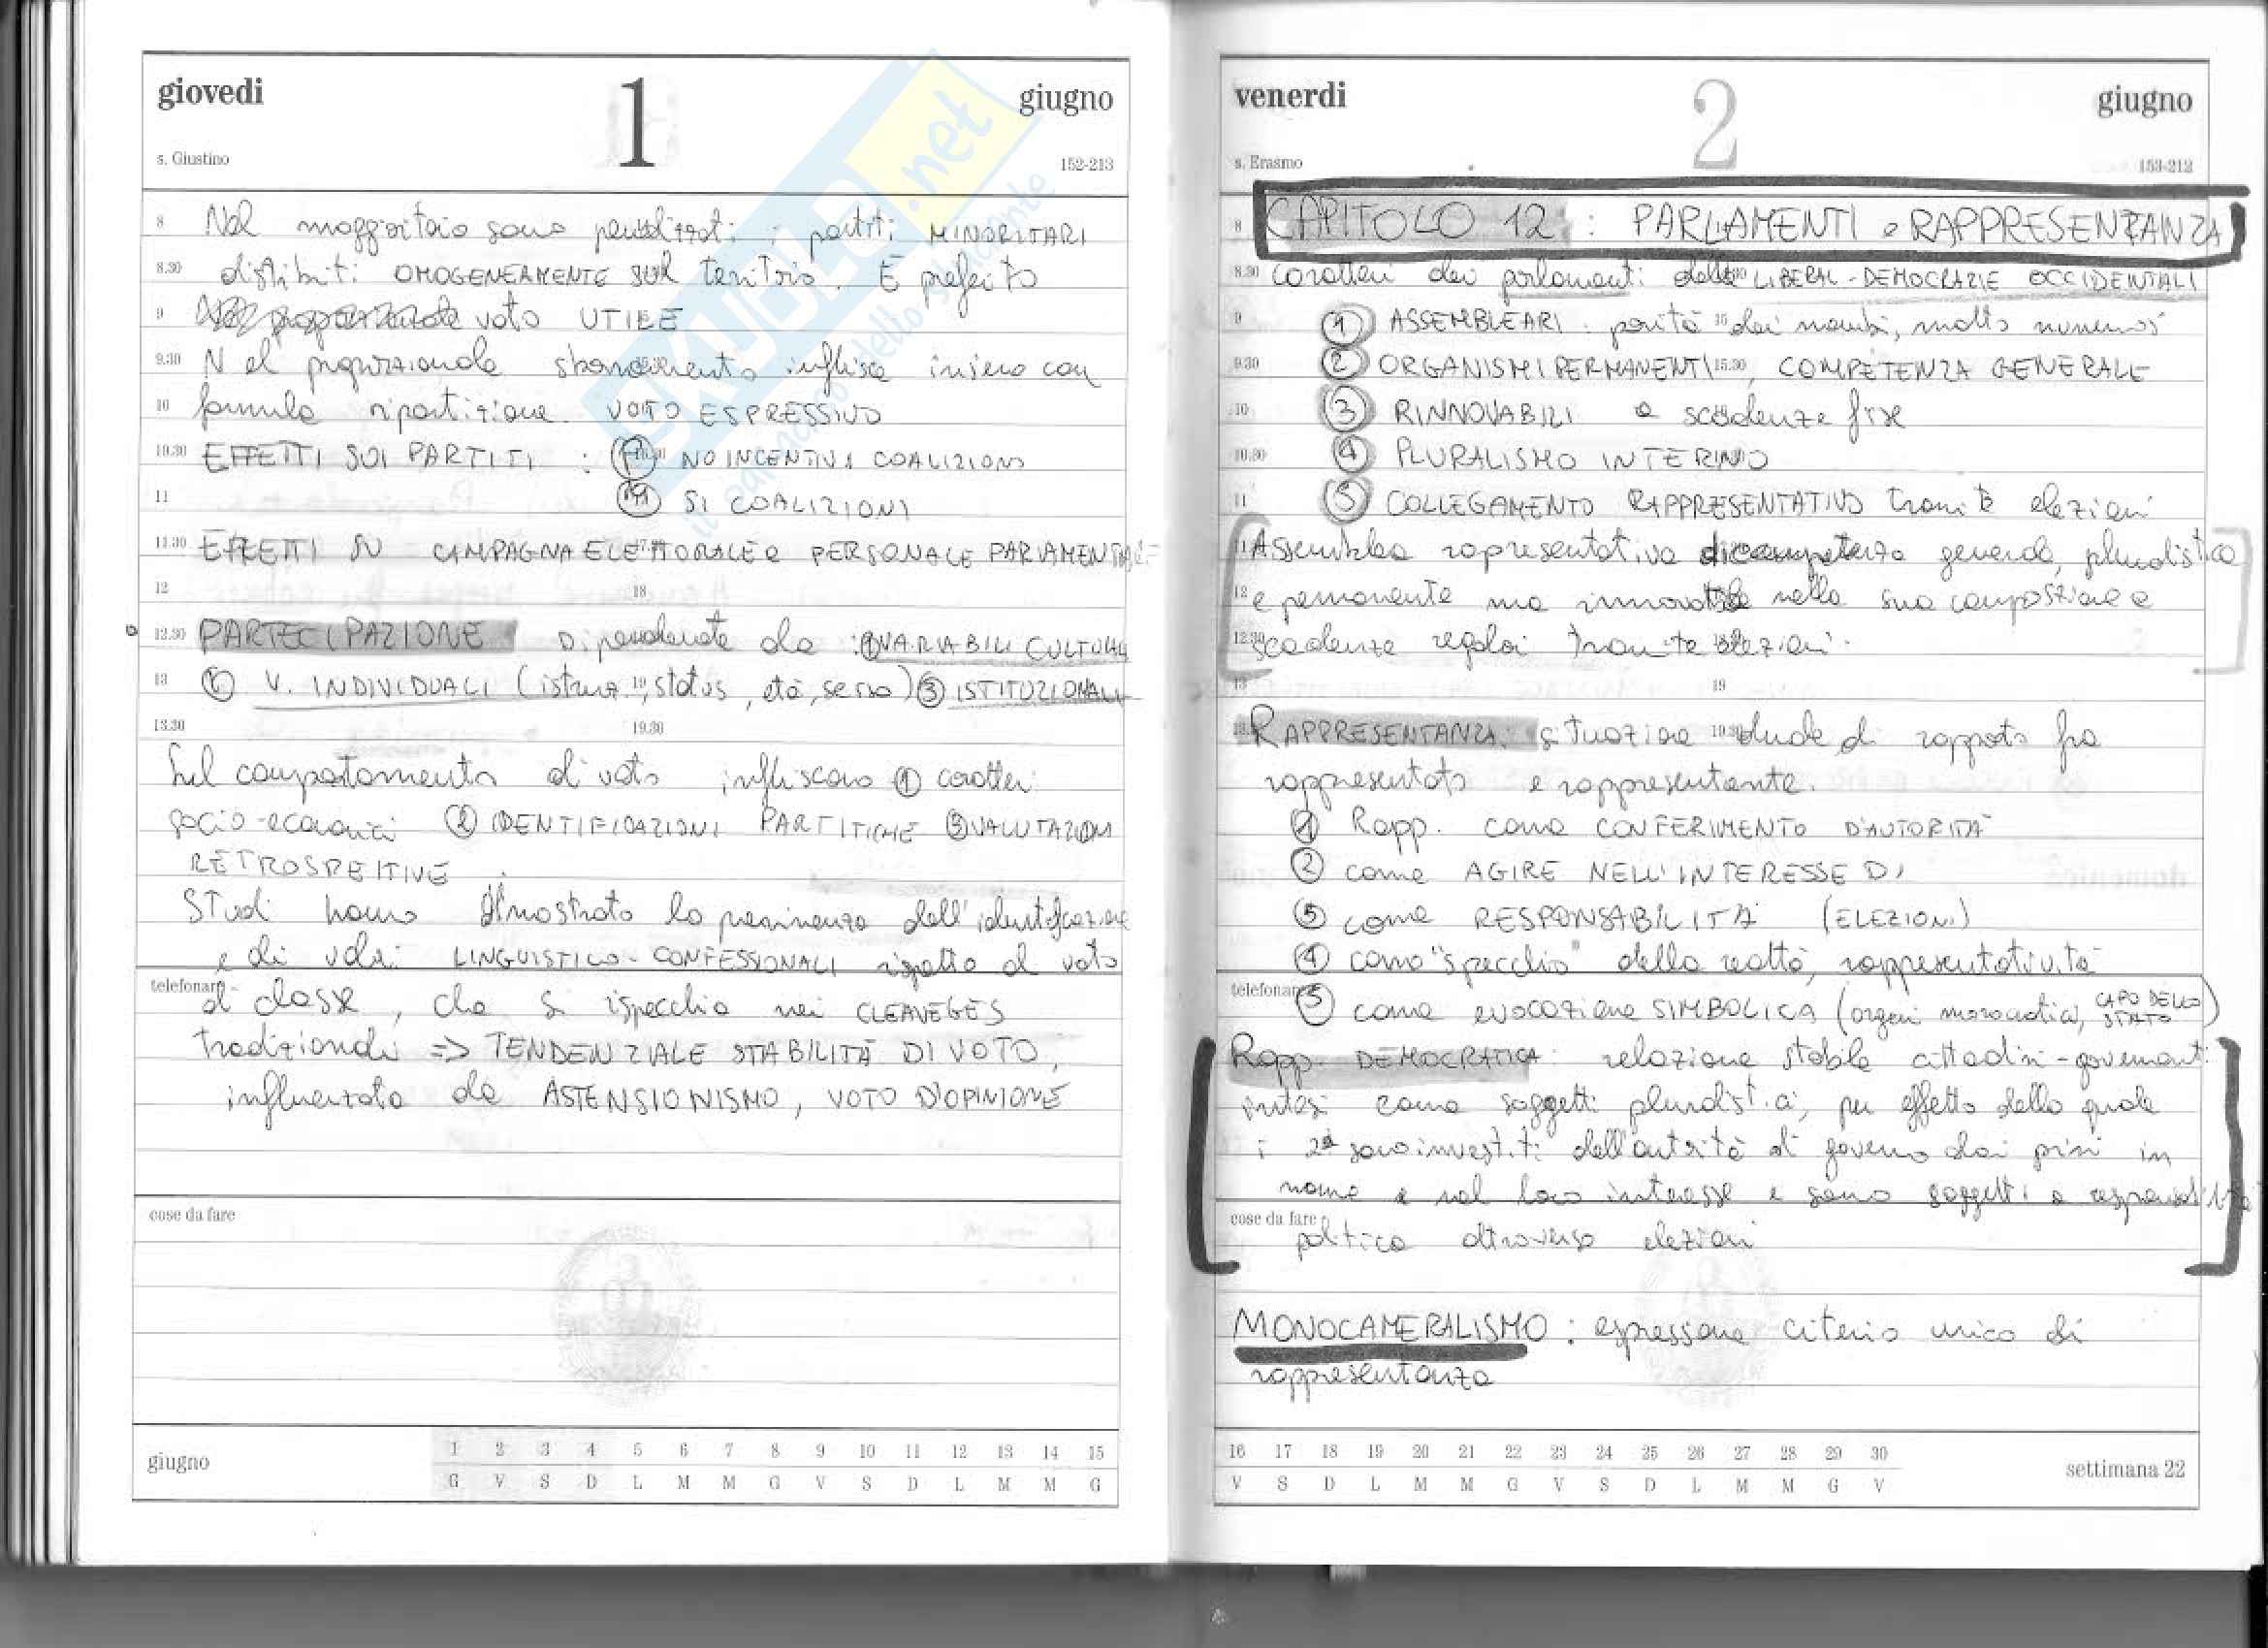 giovedì 1 giugno
s. Giustino 152-213
8 Nel maggioritario sono penalizzati i partiti MINORITARI
8.30 distribuiti OMOGENEAMENTE SUL territorio. È preferito
9 voto UTILE
9.30 Nel proporzionale sbarramento influisce insieme con
10 formula ripartizione. VOTO ESPRESSIVO
10.30 EFFETTI SUI PARTITI : (P) NO INCENTIVI COALIZIONI
11 (M) SI COALIZIONI
11.30 EFFETTI SU CAMPAGNA ELETTORALE e PERSONALE PARLAMENTARE
12 18
12.30 PARTECIPAZIONE Dipendente da : ① VARIABILI CULTURALI
13 ② V. INDIVIDUALI (istruz., status, età, sesso) ③ ISTITUZIONALI
13.30 19.30
Sul comportamento di voto influiscono ① caratteri
socio-economici ② IDENTIFICAZIONI PARTITICHE ③ VALUTAZIONI
RETROSPETTIVE
Studi hanno dimostrato la preminenza dell'identificazione
e di valori LINGUISTICO-CONFESSIONALI rispetto al voto
telefonare
di classe, che si ispecchia nei CLEAVEGES
tradizionali => TENDENZIALE STABILITÀ DI VOTO,
influenzata da ASTENSIONISMO, VOTO D'OPINIONE
cose da fare
giugno 1 2 3 4 5 6 7 8 9 10 11 12 13 14 15
G V S D L M M G V S D L M M G
venerdì 2 giugno
s. Erasmo 153-212
8 CAPITOLO 12 : PARLAMENTI e RAPPRESENTANZA
8.30 caratteri dei parlamenti delle LIBERAL-DEMOCRAZIE OCCIDENTALI
9 ① ASSEMBLEARI : parità dei membri, molto numerosi
9.30 ② ORGANISMI PERMANENTI 15.30, COMPETENZA GENERALE
10 ③ RINNOVABILI a scadenze fisse
10.30 ④ PLURALISMO INTERNO
11 ⑤ COLLEGAMENTO RAPPRESENTATIVO tramite elezioni
Assemblea rappresentativa di competenza generale, pluralistica
12 e permanente ma rinnovabile nella sua composizione a
12.30 scadenze regolari tramite elezioni.
13 19
RAPPRESENTANZA: situazione duale di rapporto fra
rappresentato e rappresentante.
① Rapp. come CONFERIMENTO D'AUTORITÀ
② come AGIRE NELL'INTERESSE DI
③ come RESPONSABILITÀ (ELEZIONI)
④ come "specchio" della realtà, rappresentatività
telefonare
⑤ come evocazione SIMBOLICA (organi monocratici, CAPO DELLO STATO)
Rapp. DEMOCRATICA: relazione stabile cittadini-governanti
intesi come soggetti pluralistici, per effetto della quale
i 2i sono investiti dell'autorità di governo dai primi in
nome e nel loro interesse e sono soggetti a responsabilità
cose da fare
politica attraverso elezioni
MONOCAMERALISMO : espressione criterio unico di
rappresentanza
16 17 18 19 20 21 22 23 24 25 26 27 28 29 30
V S D L M M G V S D L M M G V
settimana 22
SKUOLA.net